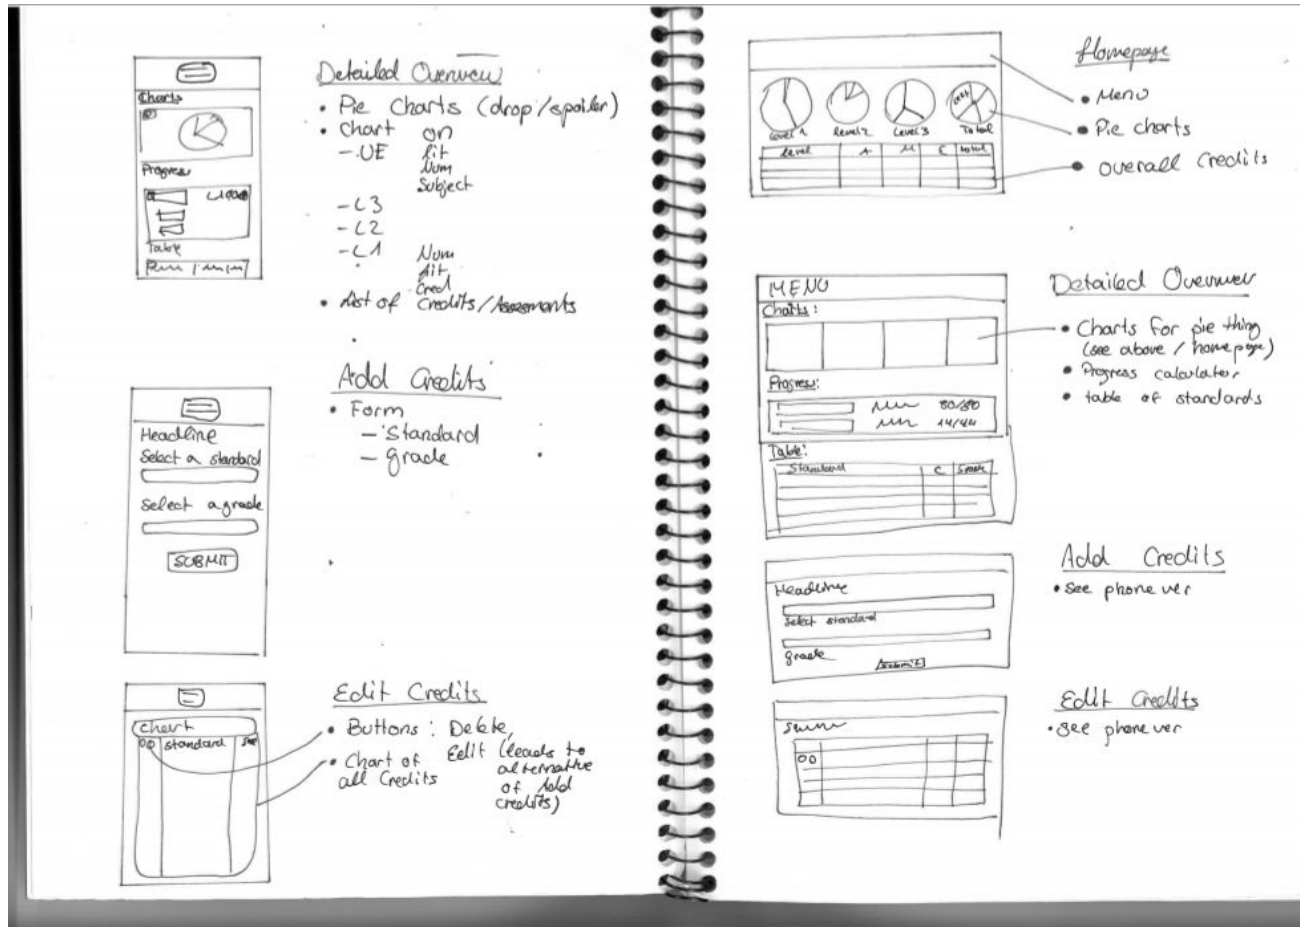 Charts
Progress
Table
Detailed Overview
• Pie Charts (drop/spoiler)
• Chart on
- UE Lit
Num
Subject
- L3
- L2
- L1 Num
Lit
Cred
• List of Credits/Assesments
Headline
Select a standard
Select a grade
SUBMIT
Add Credits
• Form
- Standard
- grade
Chart
standard
Edit Credits
• Buttons: Delete,
Edit (leads to
alternative
of Add
credits)
• Chart of
all Credits
Level 1 Level 2 Level 3 Total
Level A M C total
Homepage
• Menu
• Pie charts
• overall Credits
MENU
Charts:
Progress:
80/80
14/44
Table:
Standard C Grade
Detailed Overview
• Charts for pie thing
(see above / homepage)
• Progress calculator
• table of standards
Headline
Select standard
grade
Submit
Add Credits
• see phone ver
Edit Credits
• see phone ver